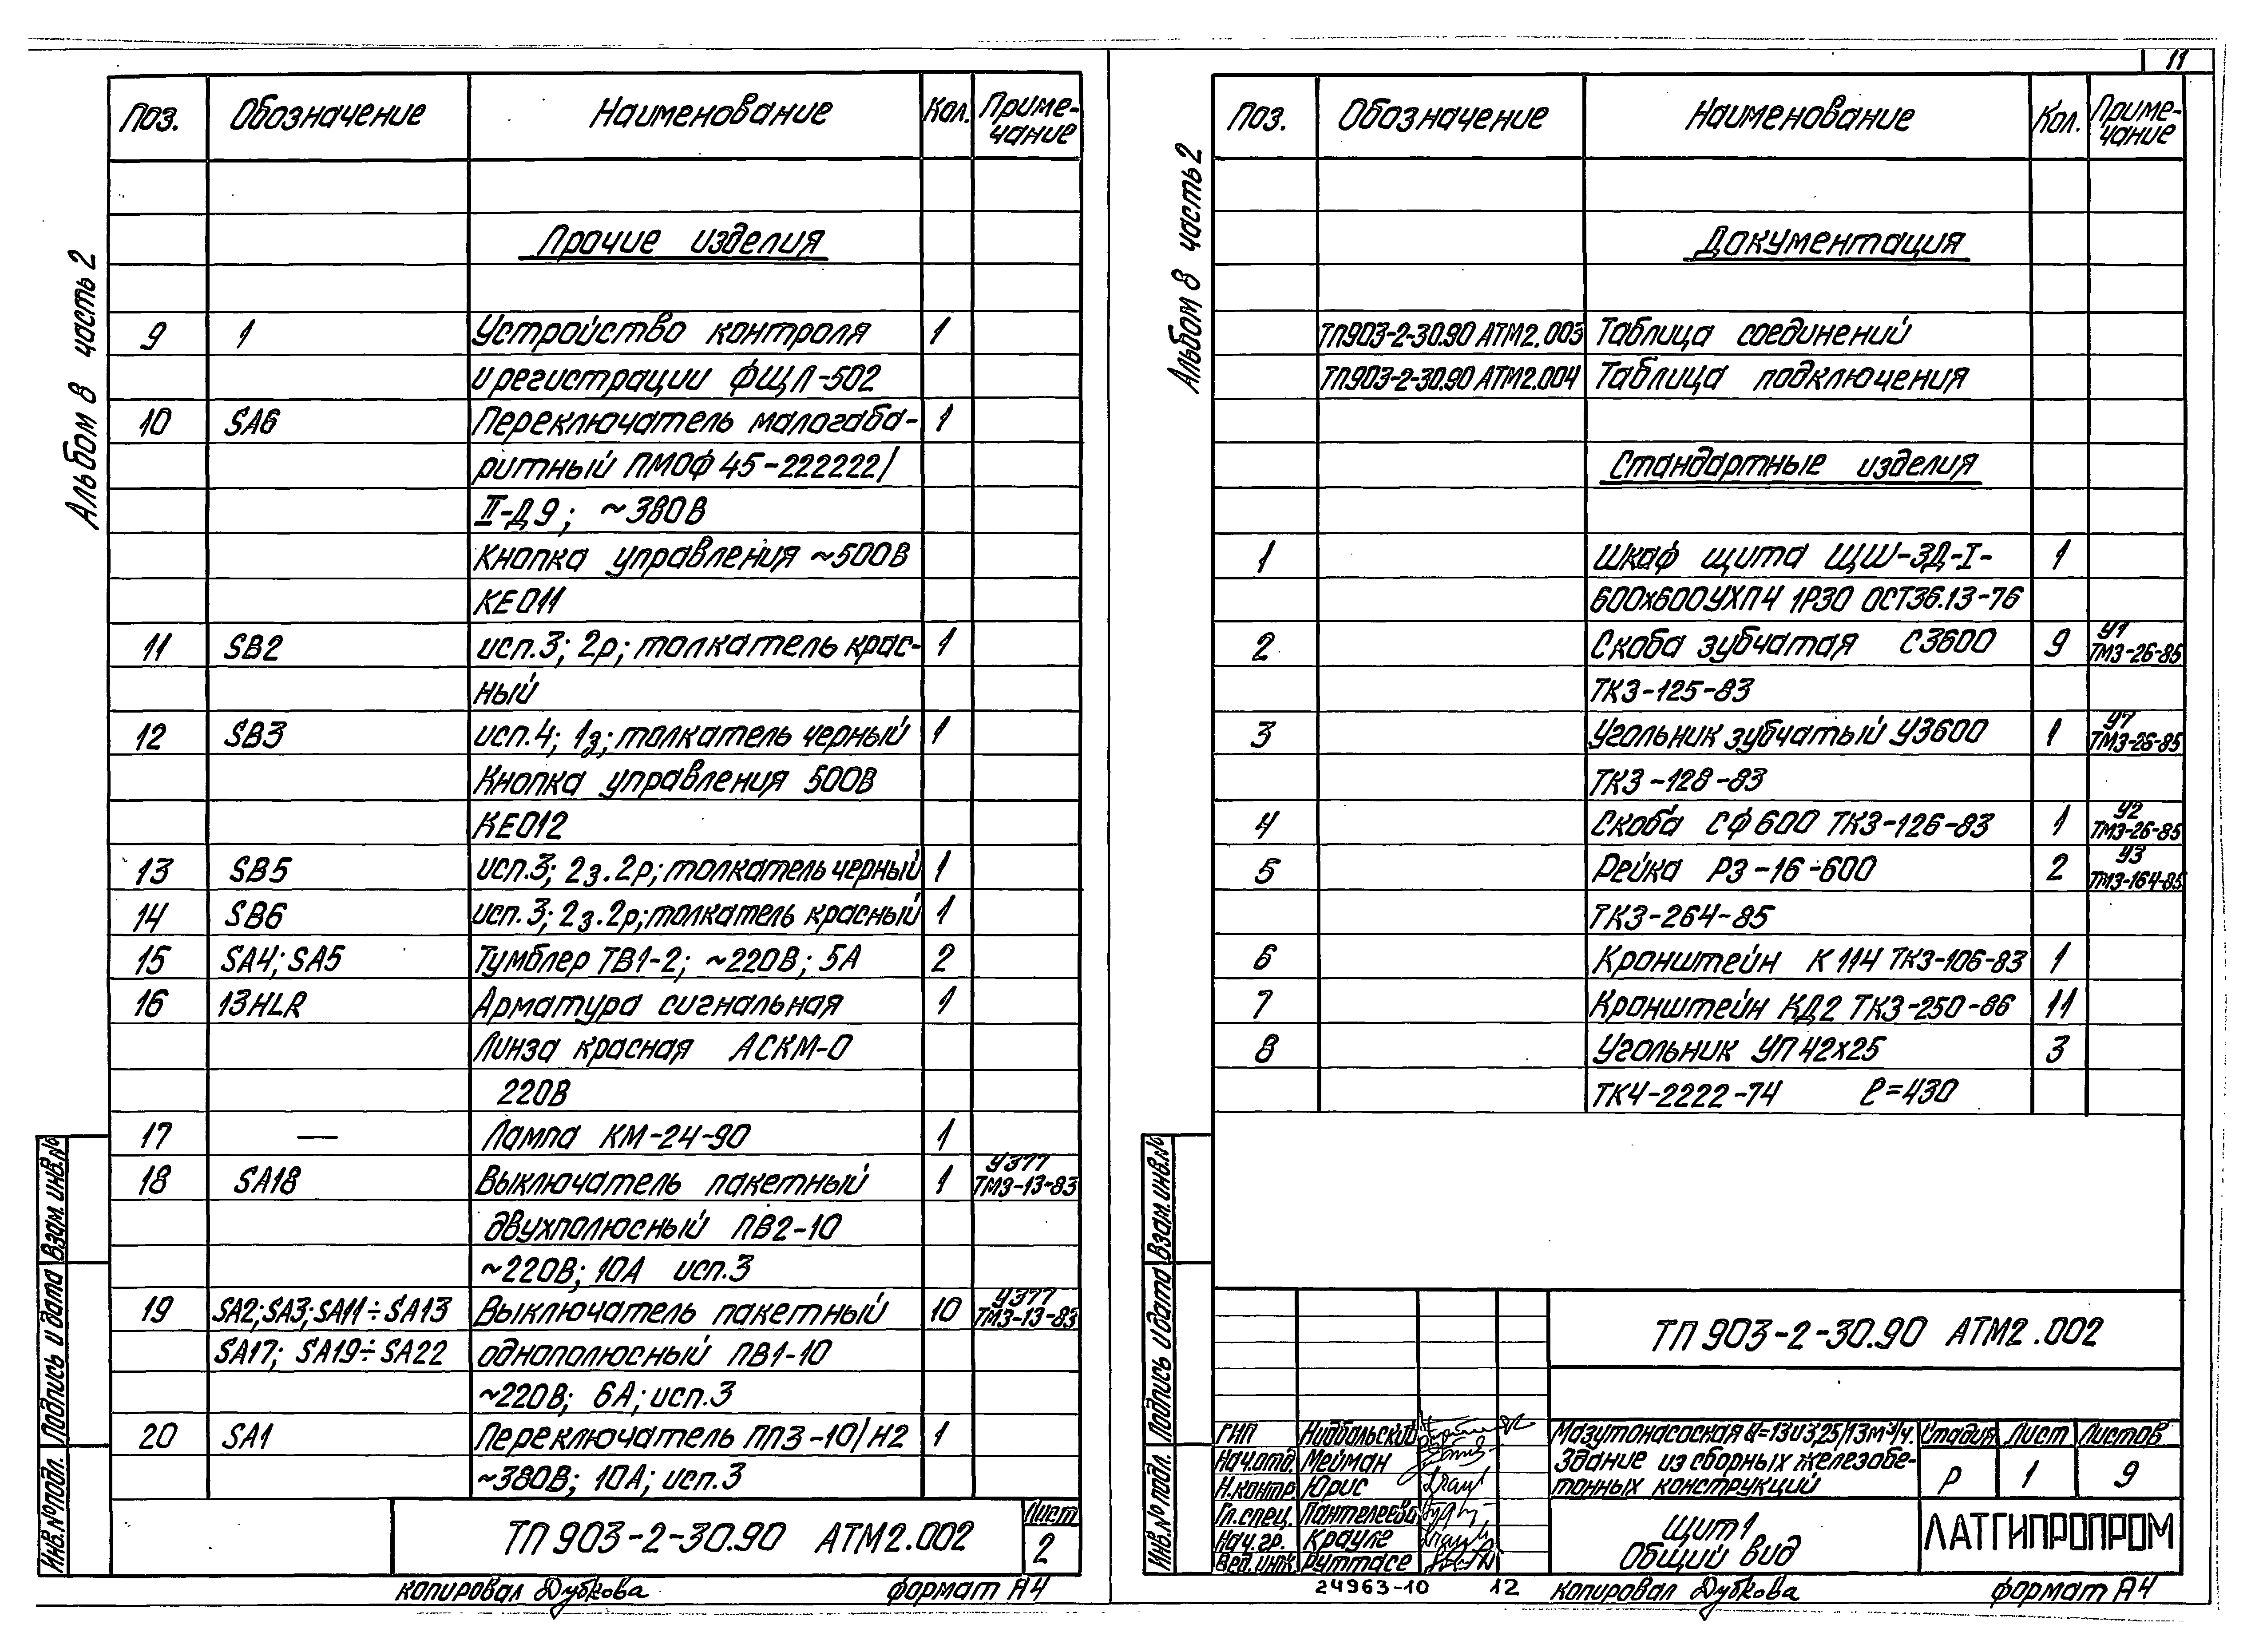 Альбом 8 часть 2
Поз. Обозначение Наименование Кол. Приме-
чание
Прочие изделия
9 1 Устройство контроля 1
и регистрации ФЩЛ-502
10 SA6 Переключатель малогаба- 1
ритный ПМОФ 45-222222/
II-Д9; ~380В
Кнопка управления ~500В
КЕ011
11 SB2 исп.3; 2р; толкатель крас- 1
ный
12 SB3 исп.4; 1з; толкатель черный 1
Кнопка управления 500В
КЕ012
13 SB5 исп.3; 2з.2р; толкатель черный 1
14 SB6 исп.3; 2з.2р; толкатель красный 1
15 SA4; SA5 Тумблер ТВ1-2; ~220В; 5А 2
16 13HLR Арматура сигнальная 1
Линза красная АСКМ-0
220В
17 — Лампа КМ-24-90 1
18 SA18 Выключатель пакетный 1 У377
ТМ3-13-83
двухполюсный ПВ2-10
~220В; 10А исп.3
19 SA2; SA3; SA11÷SA13 Выключатель пакетный 10 У377
ТМ3-13-83
SA17; SA19÷SA22 однополюсный ПВ1-10
~220В; 6А; исп.3
20 SA1 Переключатель ПП3-10/Н2 1
~380В; 10А; исп.3
Взам. инв.№
Подпись и дата
Инв.№ подл.
ТП 903-2-30.90 АТМ2.002
Лист
2
копировал Дубкова формат А4
11
Альбом 8 часть 2
Поз. Обозначение Наименование Кол. Приме-
чание
Документация
ТП903-2-30.90 АТМ2.003 Таблица соединений
ТП903-2-30.90 АТМ2.004 Таблица подключения
Стандартные изделия
1 Шкаф щита ЩШ-3Д-I- 1
600х600УХЛ4 1Р30 ОСТ36.13-76
2 Скоба зубчатая С3600 9 У1
ТМ3-26-85
ТК3-125-83
3 Угольник зубчатый У3600 1 У7
ТМ3-26-85
ТК3-128-83
4 Скоба СФ600 ТК3-126-83 1 У2
ТМ3-26-85
5 Рейка Р3-16-600 2 У3
ТМ3-164-85
ТК3-264-85
6 Кронштейн К 114 ТК3-106-83 1
7 Кронштейн КД2 ТК3-250-86 11
8 Угольник УП 42х25 3
ТК4-2222-74 ℓ=430
Взам. инв.№
Подпись и дата
Инв.№ подл.
ТП 903-2-30.90 АТМ2.002
ГИП Нидбальский
Нач.отд. Мейман
Н.контр. Юрис
Гл.спец. Пантелеева
Нач.гр. Крауле
Вед.инж. Руттасе
Мазутонасосная Q=13и3,25/13м³/ч.
Здание из сборных железобе-
тонных конструкций
Стадия Лист Листов
Р 1 9
Щит 1
Общий вид
ЛАТГИПРОПРОМ
24963-10 12 копировал Дубкова формат А4